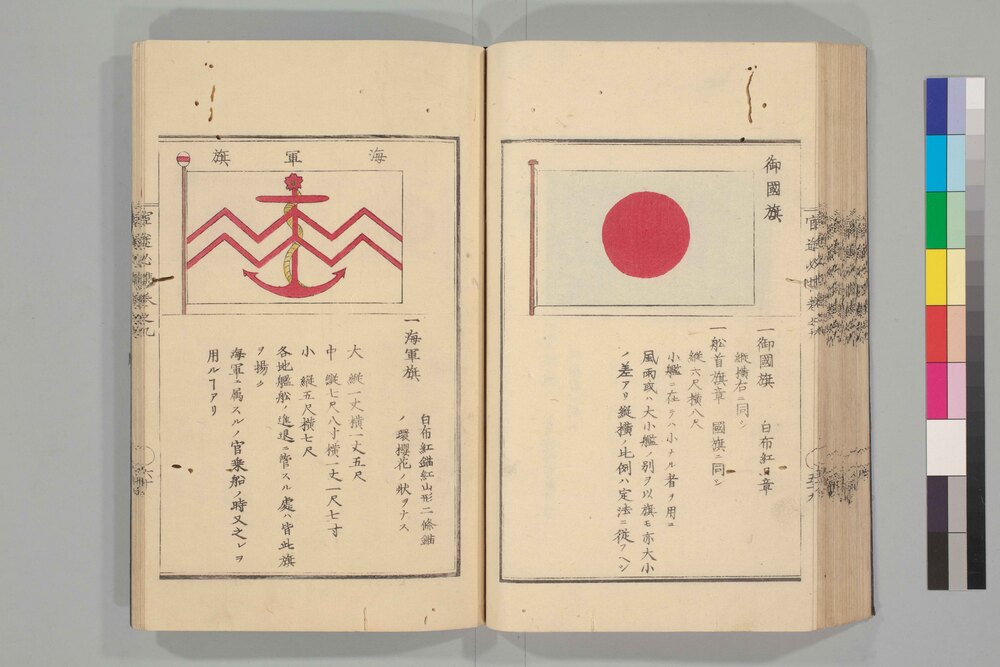 御國旗
一御國旗 白布紅日章
縦横右ニ同シ
一舩首旗章 國旗ニ同シ
縦六尺横八尺
小艦ニ在テハ小ナル者ヲ用ユ
風雨或ハ大小艦ノ列ヲ以旗モ亦大小
ノ差アリ縦横ノ比例ハ定法ニ従フヘシ
海軍旗
一海軍旗 白布紅錨紅山形二條錨
ノ環櫻花ノ状ヲナス
大 縦一丈横一丈五尺
中 縦七尺八寸横一丈一尺七寸
小 縦五尺横七尺
各地艦舩ノ進退ニ管スル處ハ皆此旗
ヲ揚ク
海軍ニ属スルノ官乗船ノ時又之レヲ
用ルヿアリ